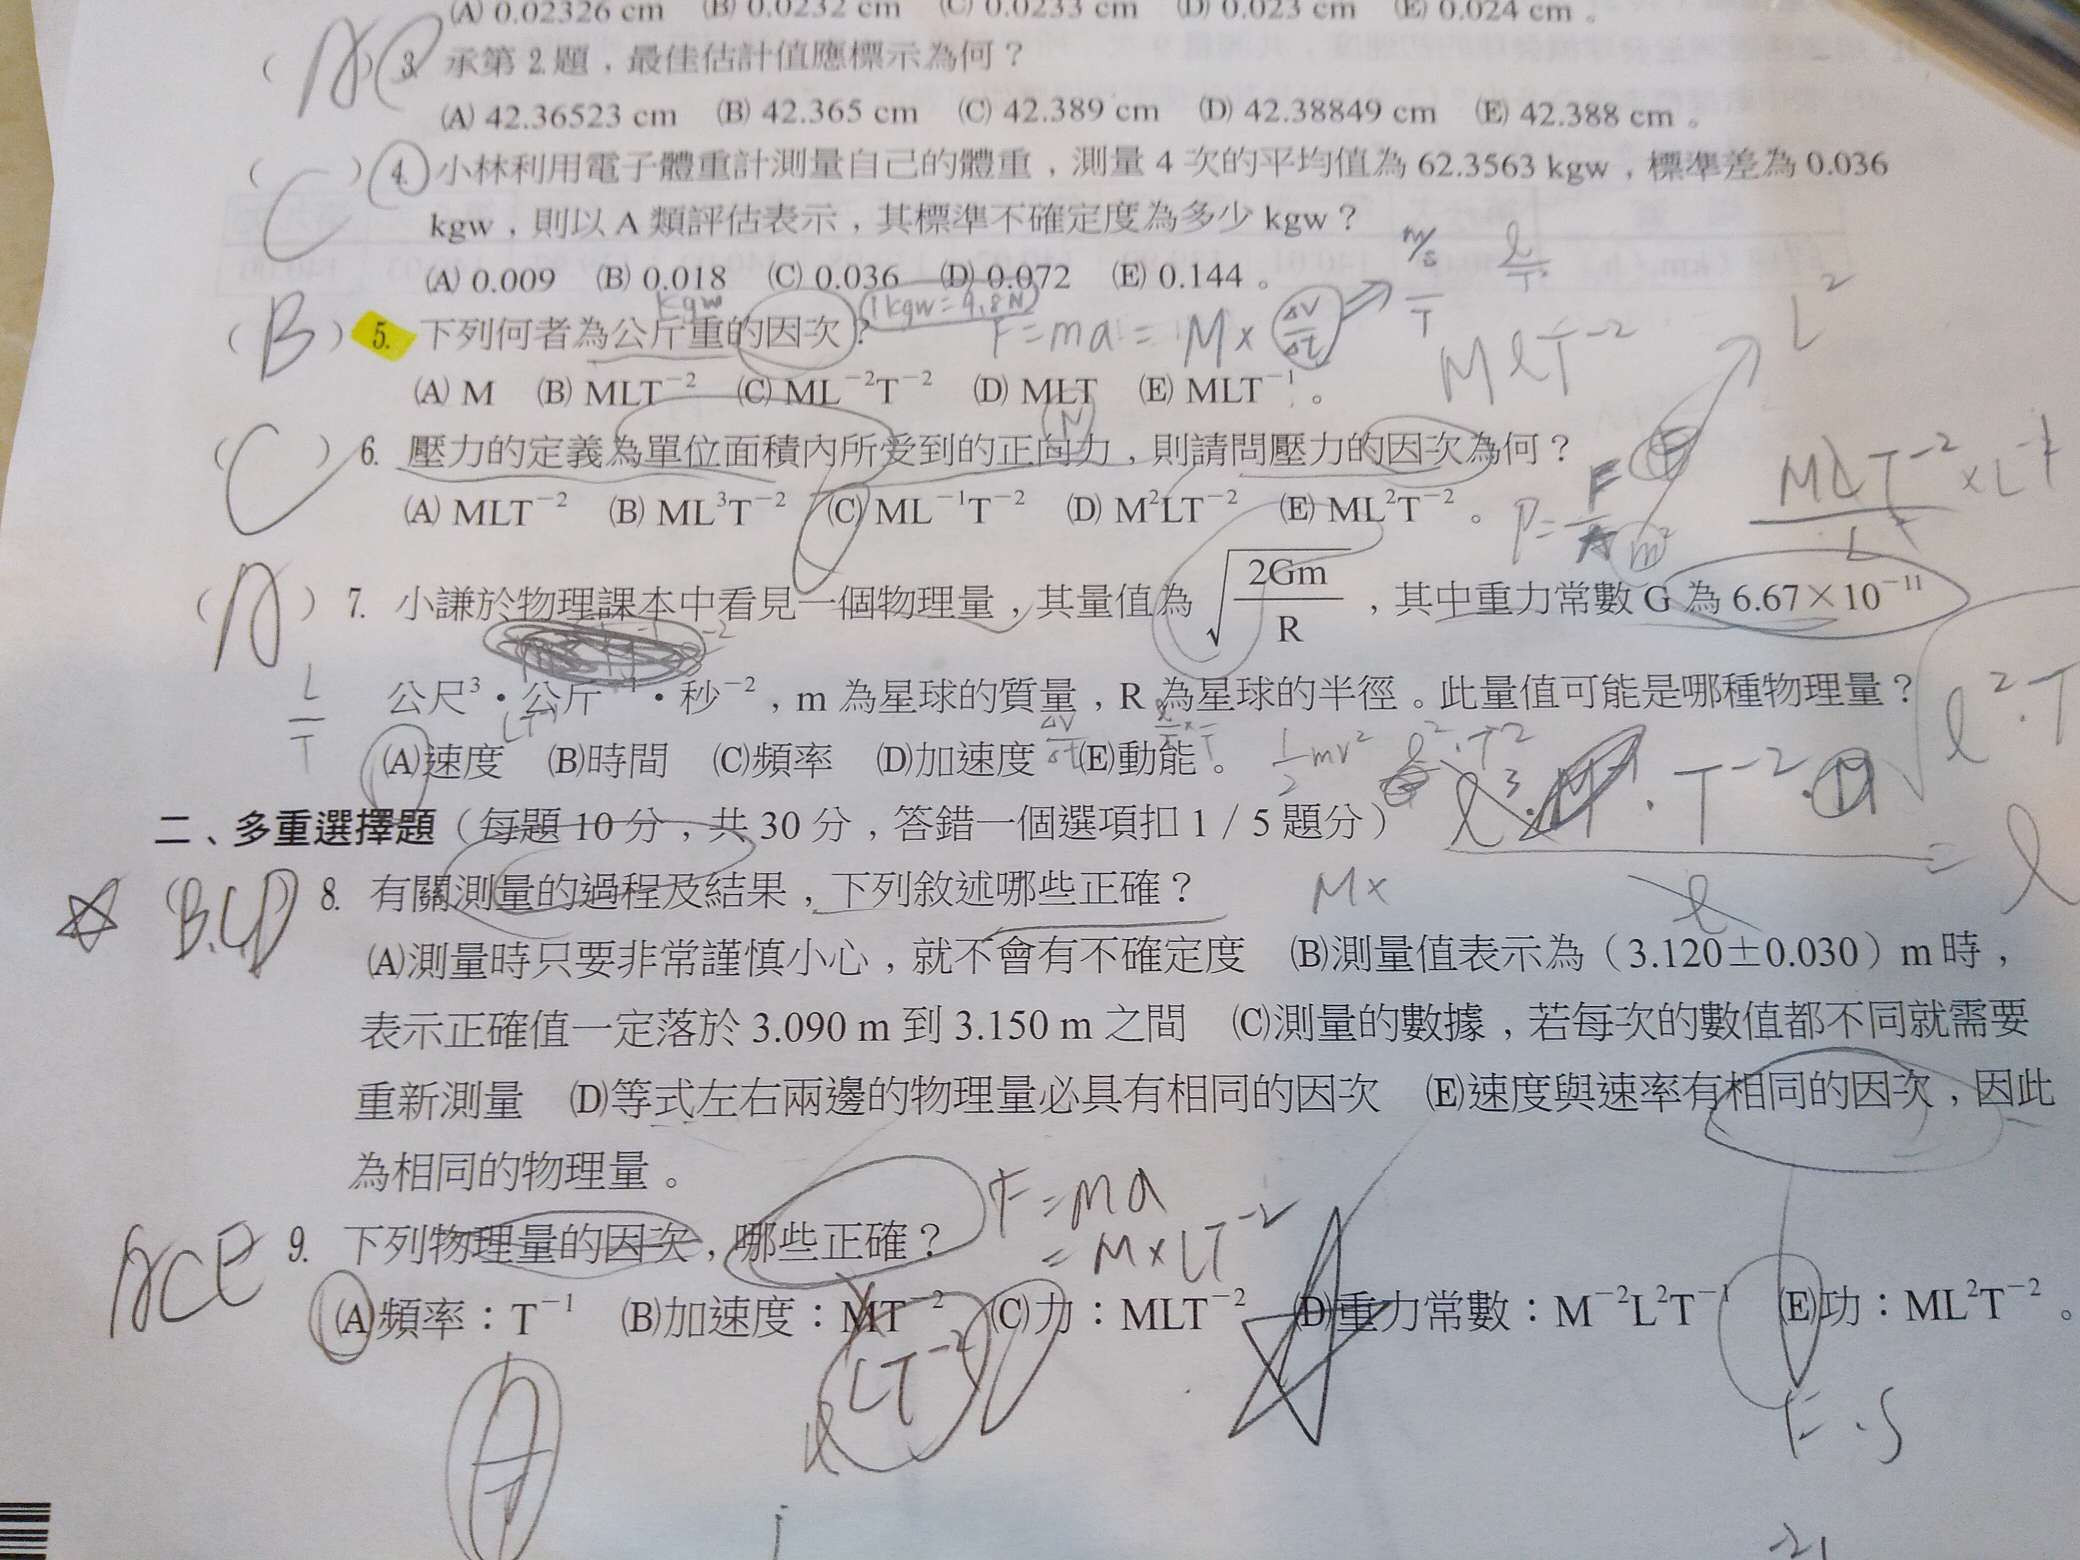 (A) 0.02326 cm (B) 0.0232 cm (C) 0.0233 cm (D) 0.023 cm (E) 0.024 cm。
( ) 3. 承第2.題，最佳估計值應標示為何？
(A) 42.36523 cm (B) 42.365 cm (C) 42.389 cm (D) 42.38849 cm (E) 42.388 cm。
( C ) 4. 小林利用電子體重計測量自己的體重，測量 4 次的平均值為 62.3563 kgw，標準差為 0.036
kgw，則以 A 類評估表示，其標準不確定度為多少 kgw？
m/s
(A) 0.009 (B) 0.018 (C) 0.036 (D) 0.072 (E) 0.144。
kgw 1kgw=9.8N
( B ) 5. 下列何者為公斤重的因次？ F=ma = M× ΔV/Δt
MlT⁻² L²
(A) M (B) MLT⁻² (C) ML⁻²T⁻² (D) MLT (E) MLT⁻¹。
N
( C ) 6. 壓力的定義為單位面積內所受到的正向力，則請問壓力的因次為何？
(A) MLT⁻² (B) ML³T⁻² (C) ML⁻¹T⁻² (D) M²LT⁻² (E) ML²T⁻²。 P=F/A m²
( A ) 7. 小謙於物理課本中看見一個物理量，其量值為 √(2Gm/R)，其中重力常數 G 為 6.67×10⁻¹¹
L/T
公尺³・公斤⁻¹・秒⁻²，m 為星球的質量，R 為星球的半徑。此量值可能是哪種物理量？
LT⁻¹ ΔV/Δt
(A)速度 (B)時間 (C)頻率 (D)加速度 (E)動能。 1/2 mv²
二、多重選擇題（每題 10 分，共 30 分，答錯一個選項扣 1／5 題分）
(B.C.D) 8. 有關測量的過程及結果，下列敘述哪些正確？ M×
(A)測量時只要非常謹慎小心，就不會有不確定度 (B)測量值表示為（3.120±0.030）m 時，
表示正確值一定落於 3.090 m 到 3.150 m 之間 (C)測量的數據，若每次的數值都不同就需要
重新測量 (D)等式左右兩邊的物理量必具有相同的因次 (E)速度與速率有相同的因次，因此
為相同的物理量。
F=ma
ACE 9. 下列物理量的因次，哪些正確？ = M×LT⁻²
(A)頻率：T⁻¹ (B)加速度：MT⁻² (C)力：MLT⁻² (D)重力常數：M⁻²L²T⁻¹ (E)功：ML²T⁻²。
LT⁻²
F.S